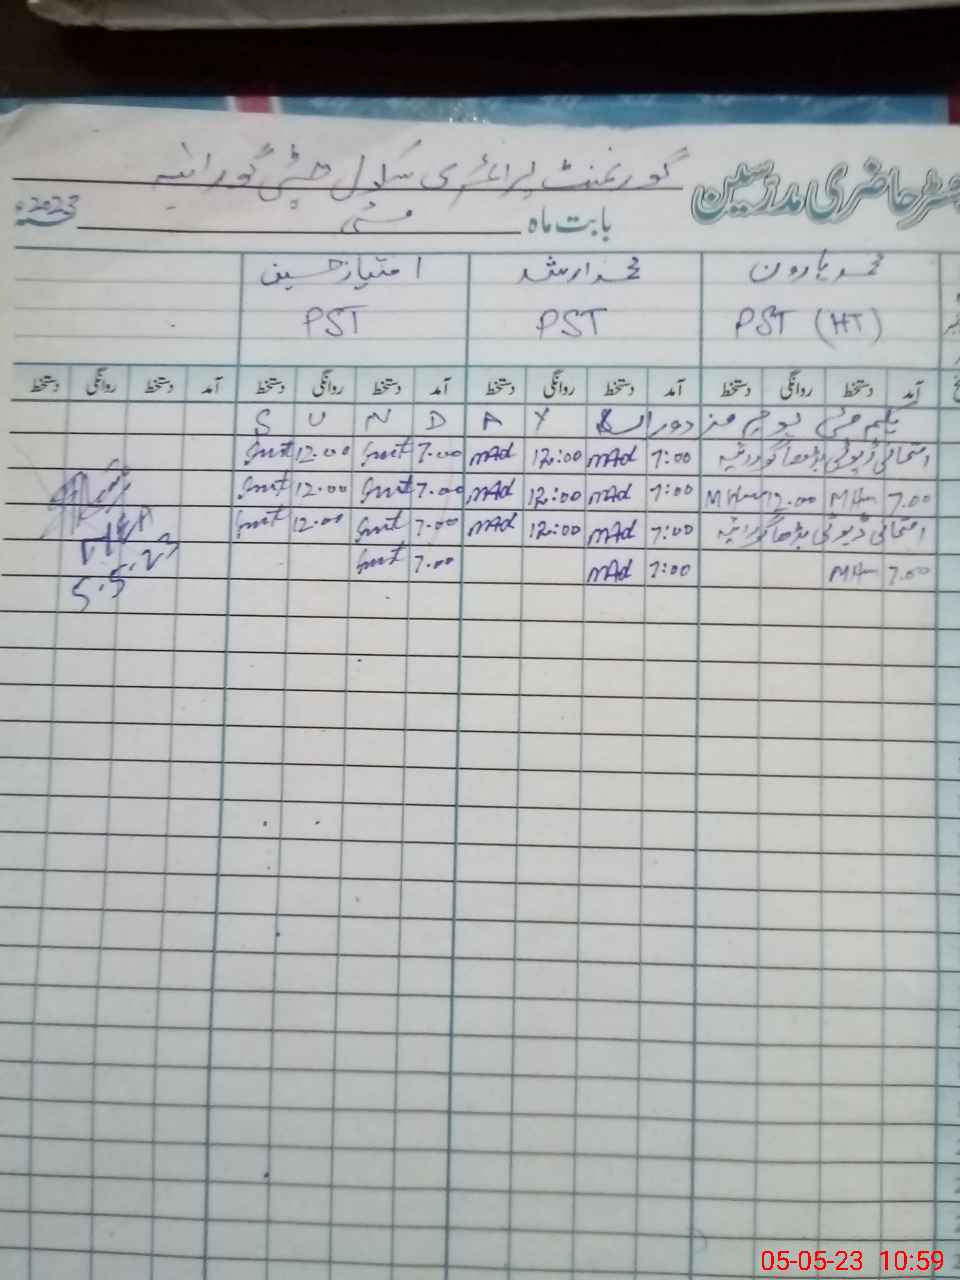 رجسٹر حاضری مدرسین گورنمنٹ پرائمری سکول چٹی گورائیہ
بابت ماہ مئی 2023ء
محمد ہارون محمد ارشد امتیاز حسین
PST (HT) PST PST
آمد دستخط روانگی دستخط آمد دستخط روانگی دستخط آمد دستخط روانگی دستخط آمد دستخط روانگی دستخط
یکم مئی یوم مزدوراں S U N D A Y
امتحانی ڈیوٹی بڈھا گورائیہ 7:00 mAd 12:00 mAd 7.00 12.00
7.00 MH 12.00 MH 7:00 mAd 12:00 mAd 7.00 12.00
امتحانی ڈیوٹی بڈھا گورائیہ 7:00 mAd 12:00 mAd 7.00 12.00
7.00 MH 7:00 mAd 7.00
5.5.23
05-05-23 10:59